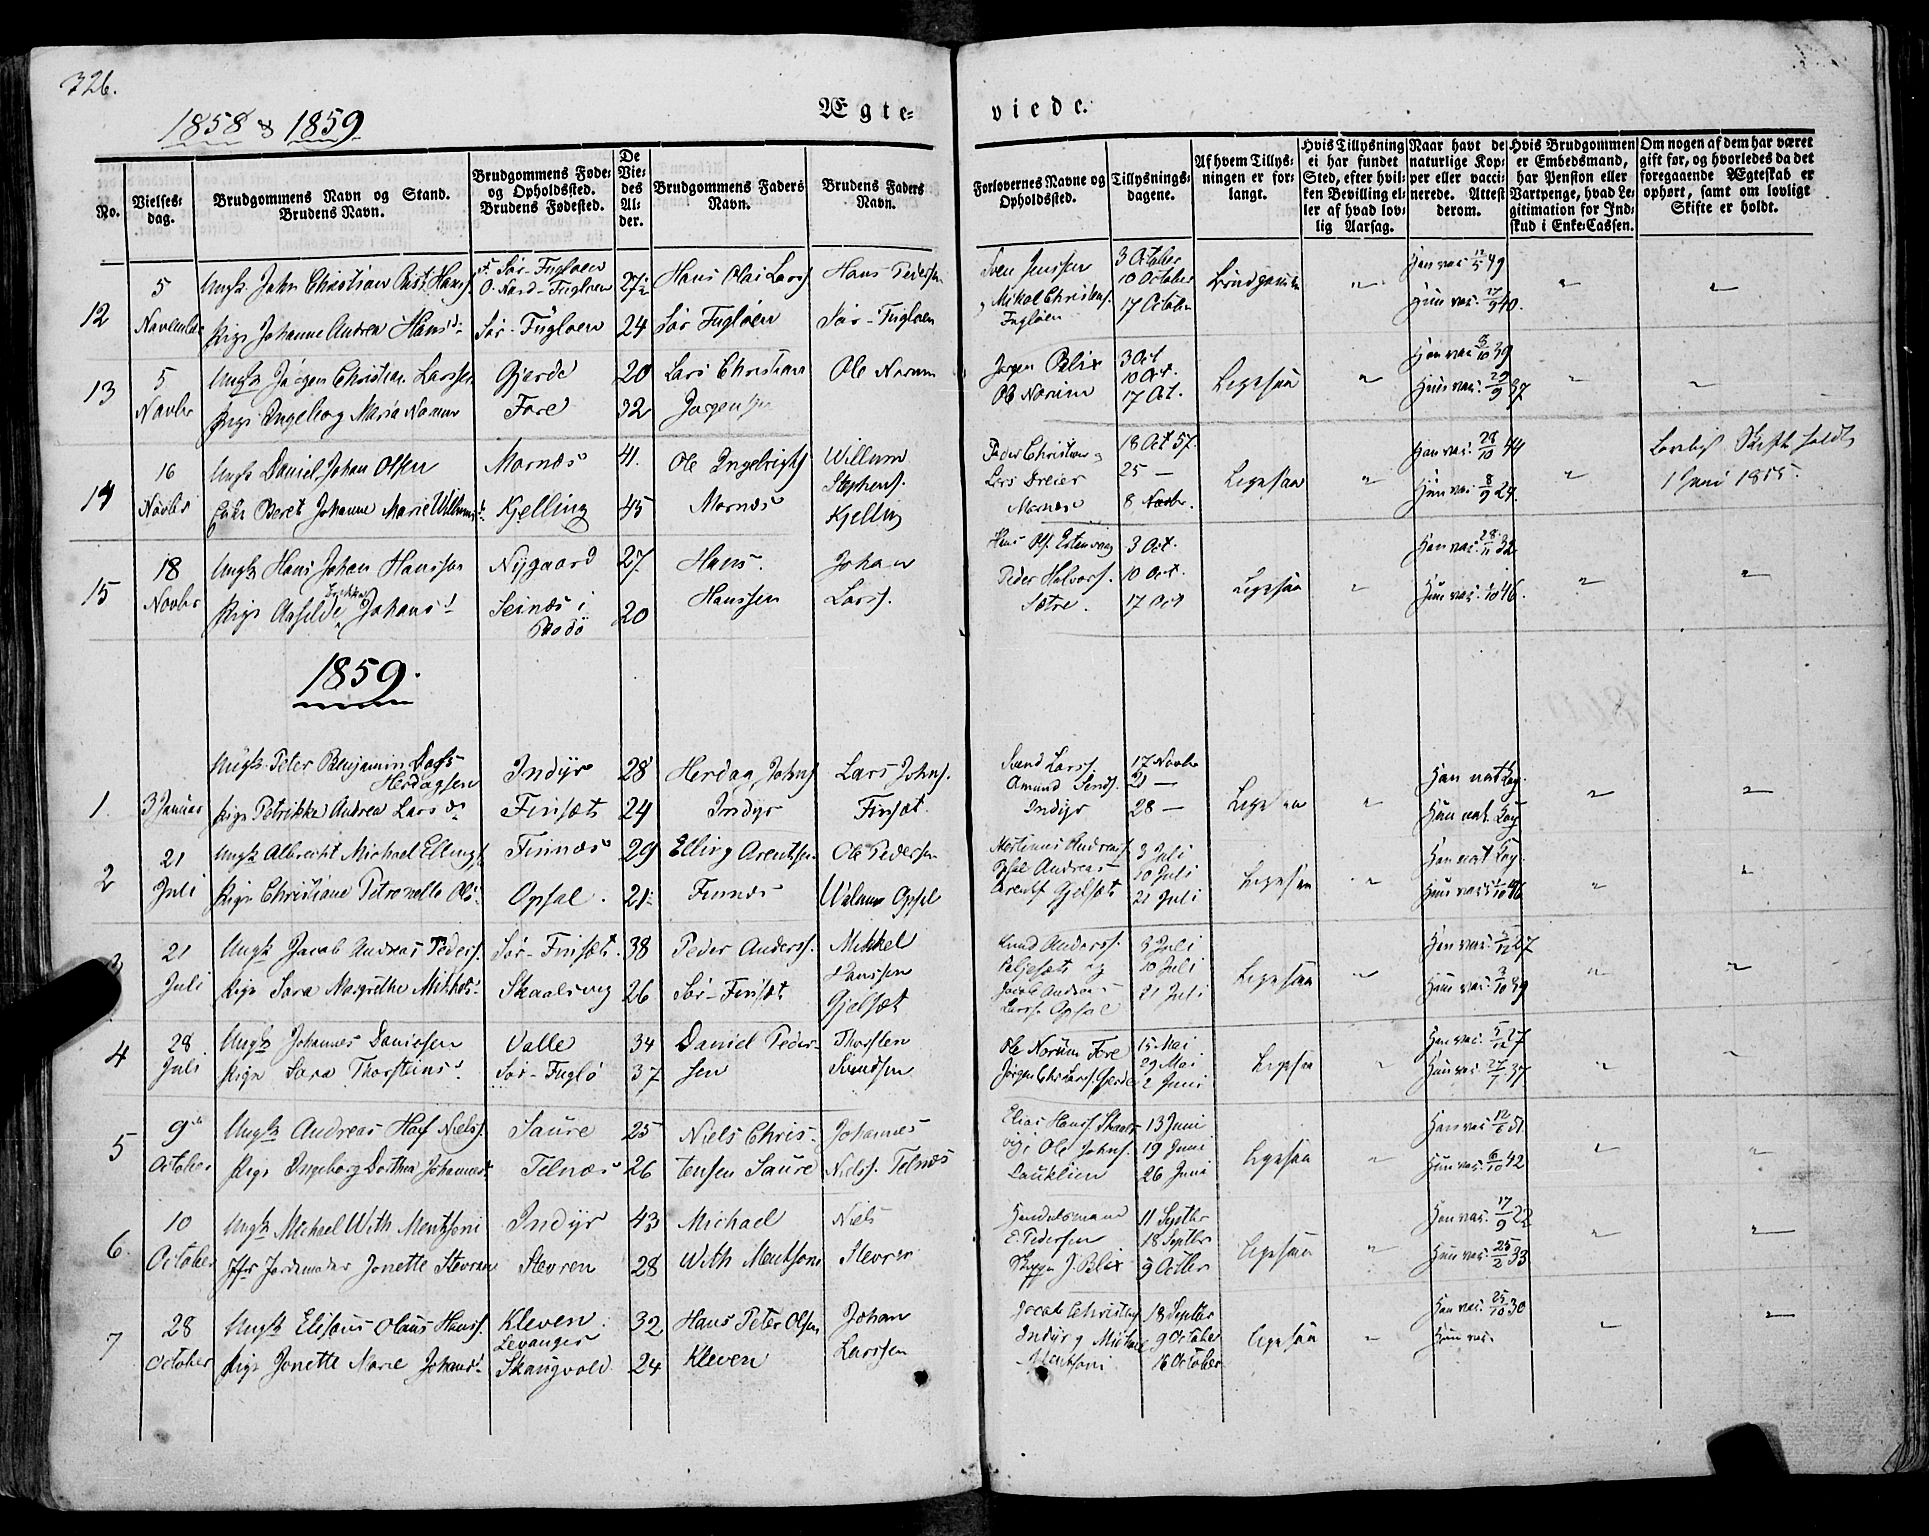 326.
1858 & 1859
Ægte=
viede.
No.
Vielses=
dag.
Brudgommens Navn og Stand.
Brudens Navn.
Brudgommens Føde=
og Opholdssted.
Brudens Fødested.
De
Vie=
des
Al=
der.
Brudgommens Faders
Navn.
Brudens Faders
Navn.
Forlovernes Navne og
Opholdssted.
Tillysnings=
dagene.
Af hvem Tillys=
ningen er for=
langt.
Hvis Tillysning
ei har fundet
Sted, efter hvil=
ken Bevilling el=
ler af hvad lov=
lig Aarsag.
Naar havt de
naturlige Kop=
per eller vacci=
nerede. Attest
derom.
Hvis Brudgommen
er Embedsmand,
har Pension eller
Vartpenge, hvad Le=
gitimation for Ind=
skud i Enke=Cassen.
Om nogen af dem har været
gift før, og hvorledes da det
foregaaende Ægteskab er
ophørt, samt om lovligt
Skifte er holdt.
12
5
November
Ungk John Christian Hans.
Pige Johanne Andrea Hansd.
F. Sør-Fugløen
O. Nord-Fugløen
Sør-Fugløen
27½
24
Hans Olai Larss
Sør Fugløen
Hans Pedersen
Sør-Fugløen
Sven Jenssen
Mikal Christens.
Fugløen
3 October
10 October
17 October
Brudgommen
"
Han vac 12/5 49
Hun vac. 17/9 40.
"
"
13
5
Novbr
Ungk Jørgen Christian Larssen
Pige Ingeborg Maria Norum
Gjerde
Fore
20
32
Lars Christian
Jørgensen
Ole Norum
Jørgen Blix
Ole Norum
3 Oct
10 Oct.
17 Oct.
Ligesaa
"
Han vac 8/10 39
Hun vac. 29/9 37
"
"
14
16
Novbr
Ungk Daniel Johan Olsen
Enke Beret Johanne Marie Willumsd.
Mornæs
Kjelling
41.
45
Ole Ingebrigts
Mornæs
Willum
Stephens.
Kjelling
Peder Christian
Lars Dreier
Mornæs
18 Oct 57.
25 —
8 Novbr.
Ligesaa
"
Han vac. 28/10 44
Hun vac. 8/9 24.
"
Lovligt Skifte holdt
1 Juni 1855.
15
18
Novbr
Ungk Hans Johan Hanssen
Pige Aasilde Johansd
Nygaard
Seines i
Bodø
27
20
Hans.
Hanssen
Johan
Larss.
Peder Halvors.
Sætre.
3 Oct.
10 Oct.
17 Oct
Ligesaa
"
Han vac. 28/11 32
Hun vac. 1/10 46.
"
"
1859.
1.
3 Januar
Ungk. Peter Benjamin Dass
Herdagsen
Pige Petrikke Andrea Larsd.
Indyr
Finsæt
28
24
Herdag Johns
Indyr
Lars Johns.
Finsæt.
Svend Larss.
Amund Svends.
Indyr
17 Novbr
21 —
28 —
Ligesaa
"
Han nat Kop.
Hun nat. Kop
"
"
2
21
Juli
Ungk Albrecht Michael Ellings.
Pige Christiane Petronelle Ols.
Finnæs
Opsal.
29
21.
Elling Arentsen
Finnæs
Ole Pedersen
Opsal
Opsal Andreas
Arents Gjelsæt
3 Juli
10 Juli
21 Juli
Ligesaa
"
Han nat Kop.
Hun vac. 1/10 46
"
"
3
21
Juli
Ungk Jacob Andreas Peders.
Pige Sara Margrethe Mikkels.
Sør-Finsæt.
Skaalsvig
38
26
Peder Anderss.
Sør-Finsæt
Mikkel
Hanssen
Gjelsæt
Knud Anderss.
Jacob Andreas
Larss. Opsal
3 Juli
10 Juli
21 Juli
Ligesaa
"
Han vac. 27
Hun vac. 3/10 39
"
"
4
28
Juli
Ungk Johannes Danielsen
Pige Sara Thorsteins.
Valle
Sør-Fuglø
34
37
Daniel Peder=
sen
Thorsten
Svendsen
Ole Norum Fore
Jørgen Chr. Larss. Gjerde
15 Mai
29 Mai
2 Juni
Ligesaa
"
Han vac. 5/12 27
Hun vac 27/7 37
"
"
5
9de
October
Ungk Andreas Hoff Niels.
Pige Ingeborg Dorthea Johannesd.
Saure
Telnæs
25
26
Niels Chris=
tensen Saure
Johannes
Niels. Telnæs
Elias Hanss. Skaals=
vig, Ole Johns.
Lauklien
13 Juni
19 Juni
26 Juni
Ligesaa
"
Han vac 12/6 51
Hun vac. 6/10 42
"
"
6.
10
October
Ungk Michael With Mentzoni
Jfr Jordemoder Jonette Stevren
Indyr
Stevren
43
28
Michael
With Mentzoni
Niels
Stevren
Handelsmand
E. Pedersen
J. Blix
11 Septbr
18 Septbr
9 Octbr
Ligesaa
"
Han vac. 17/9 22
Hun vac. 25/2 33
"
"
7
28
October
Ungk Elisæus Olaus Hanss.
Pige Jonette Marie Johansd.
Kleven.
Levanger
Skangvold
32
24
Hans Peter Olsen
Kleven
Johan
Larssen
Jacob Christens.
Indyr og Michael
Mentzoni.
18 Septbr
9 October
16 October
Ligesaa
"
Han vac. 25/10 30
Hun vac.
"
"